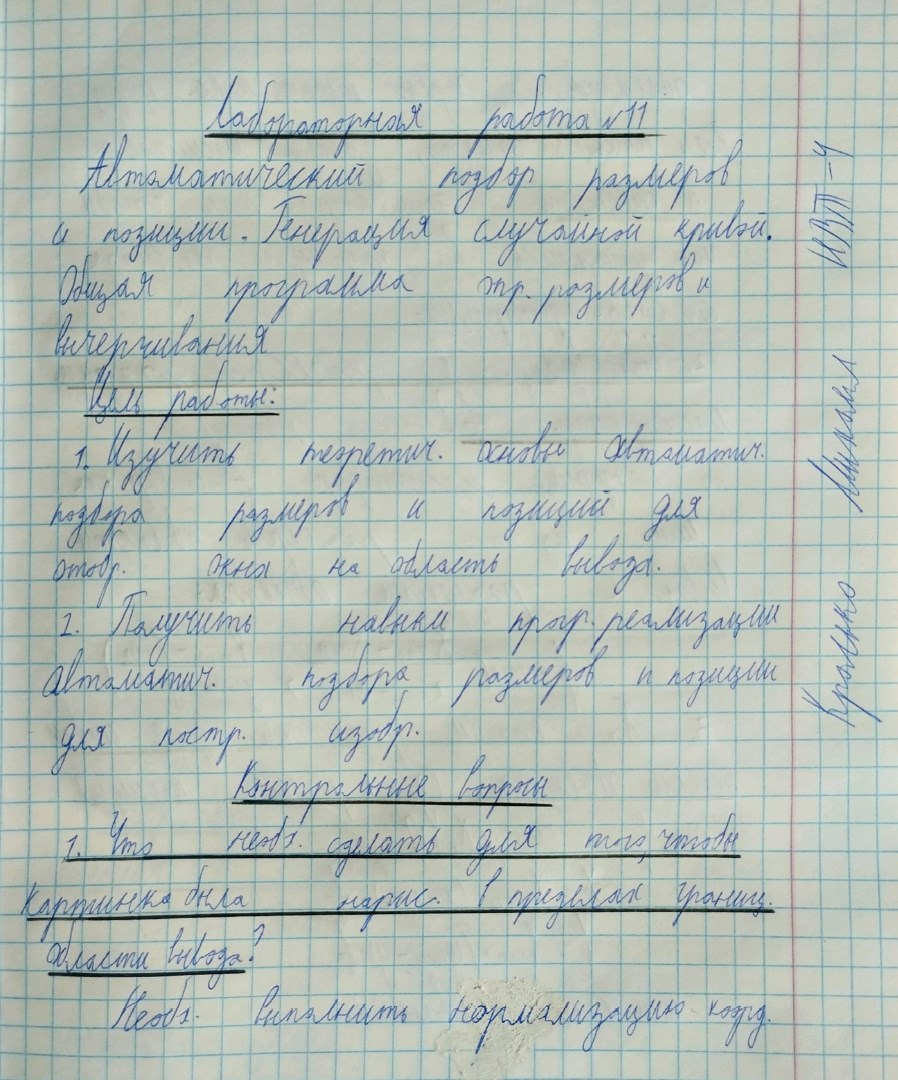 Лабораторная работа №11
Автоматический подбор размеров
и позиции. Генерация случайной кривой.
Общая программа опр. размеров и
вычерчивания
Цель работы:
1. Изучить теоретич. основы автоматич.
подбора размеров и позиций для
отобр. окна на область вывода.
2. Получить навыки прогр. реализации
автоматич. подбора размеров и позиции
для постр. изобр.
Контрольные вопросы
1. Что необх. сделать для того, чтобы
картинка была нарис. в пределах границ.
области вывода?
Необх. выполнить нормализацию коорд.
Кралько Михаил ИВТ-4